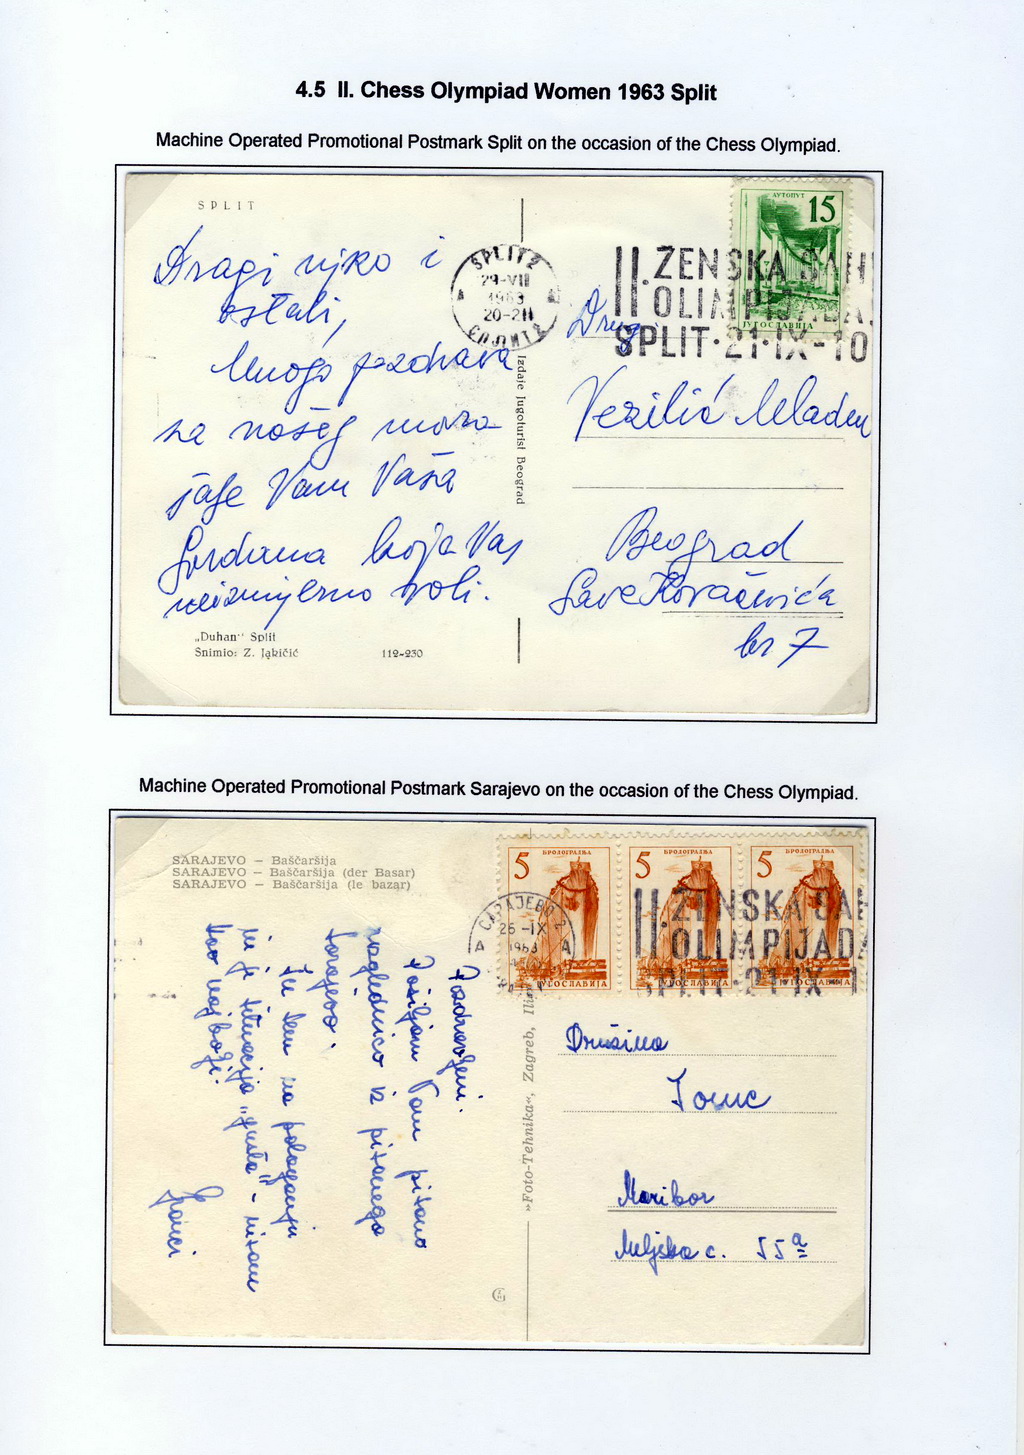 4.5 II. Chess Olympiad Women 1963 Split
Machine Operated Promotional Postmark Split on the occasion of the Chess Olympiad.
SPLIT
Dragi ujko i
ostali,
Mnogo pozdrava
sa našeg mora
šalje Vam Vaša
Gordana koja Vas
neizmjerno voli.
„Duhan" Split
Snimio: Z. Jakičić 112-230
Izdaje Jugoturist Beograd
SPLIT 2
29-VII
1963
20-21
СПЛИТ 2
II. ŽENSKA ŠAH
OLIMPIJADA
SPLIT·21·IX-10
АУТОПУТ
15
ЈУГОСЛАВИЈА
Drug
Vezilić Mladen
Beograd
Save Kovačevića
br 7
Machine Operated Promotional Postmark Sarajevo on the occasion of the Chess Olympiad.
SARAJEVO – Baščaršija
SARAJEVO – Baščaršija (der Basar)
SARAJEVO – Baščaršija (le bazar)
Pozdravljeni.
Pošiljam Vam pisano
razglednico iz pisanega
Sarajeva.
Tu sem na polaganju
in je situacija „gusta" - nisem
kao najbolje.
»Foto-Tehnika«, Zagreb,
САРАЈЕВО 2
26-IX
1963
A A
II. ŽENSKA ŠA
OLIMPIJAD
SPLIT·21·IX-1
5 БРОДОГРАДЊА
ЈУГОСЛАВИЈА
5 БРОДОГРАДЊА
ЈУГОСЛАВИЈА
5 БРОДОГРАДЊА
ЈУГОСЛАВИЈА
Družina
Tomc
Maribor
Meljska c. 55a